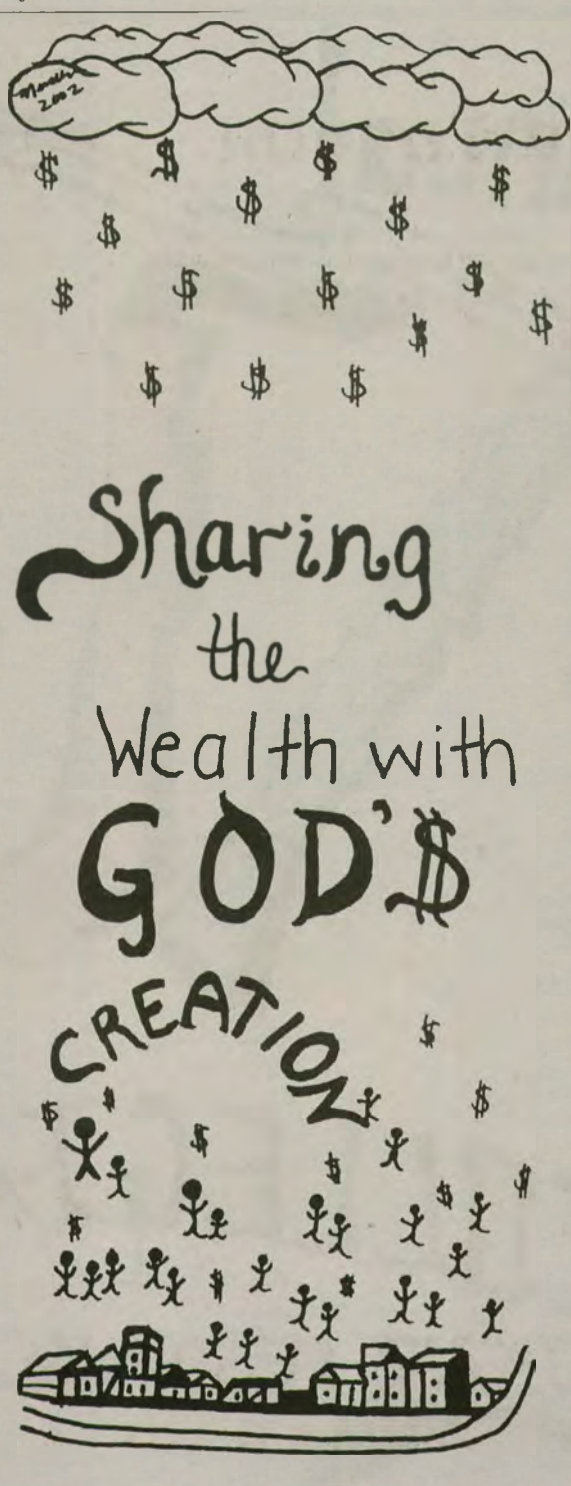 2002
Sharing
the
Wealth with
GOD'$
CREATION